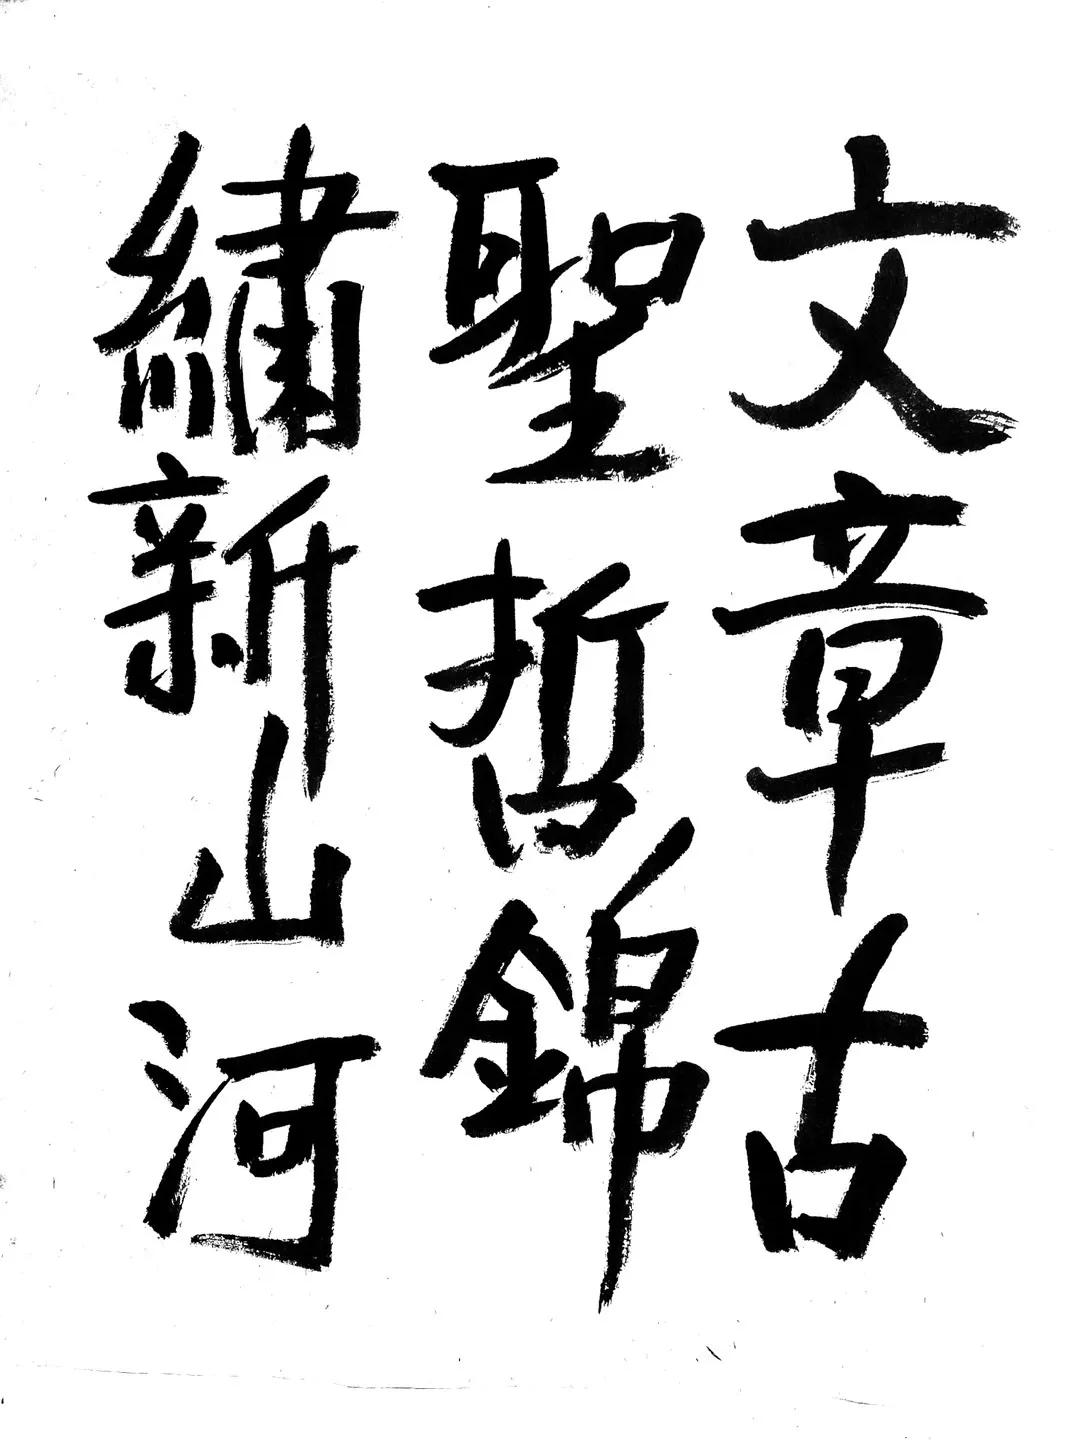 文章古
聖哲錦
繡新山河